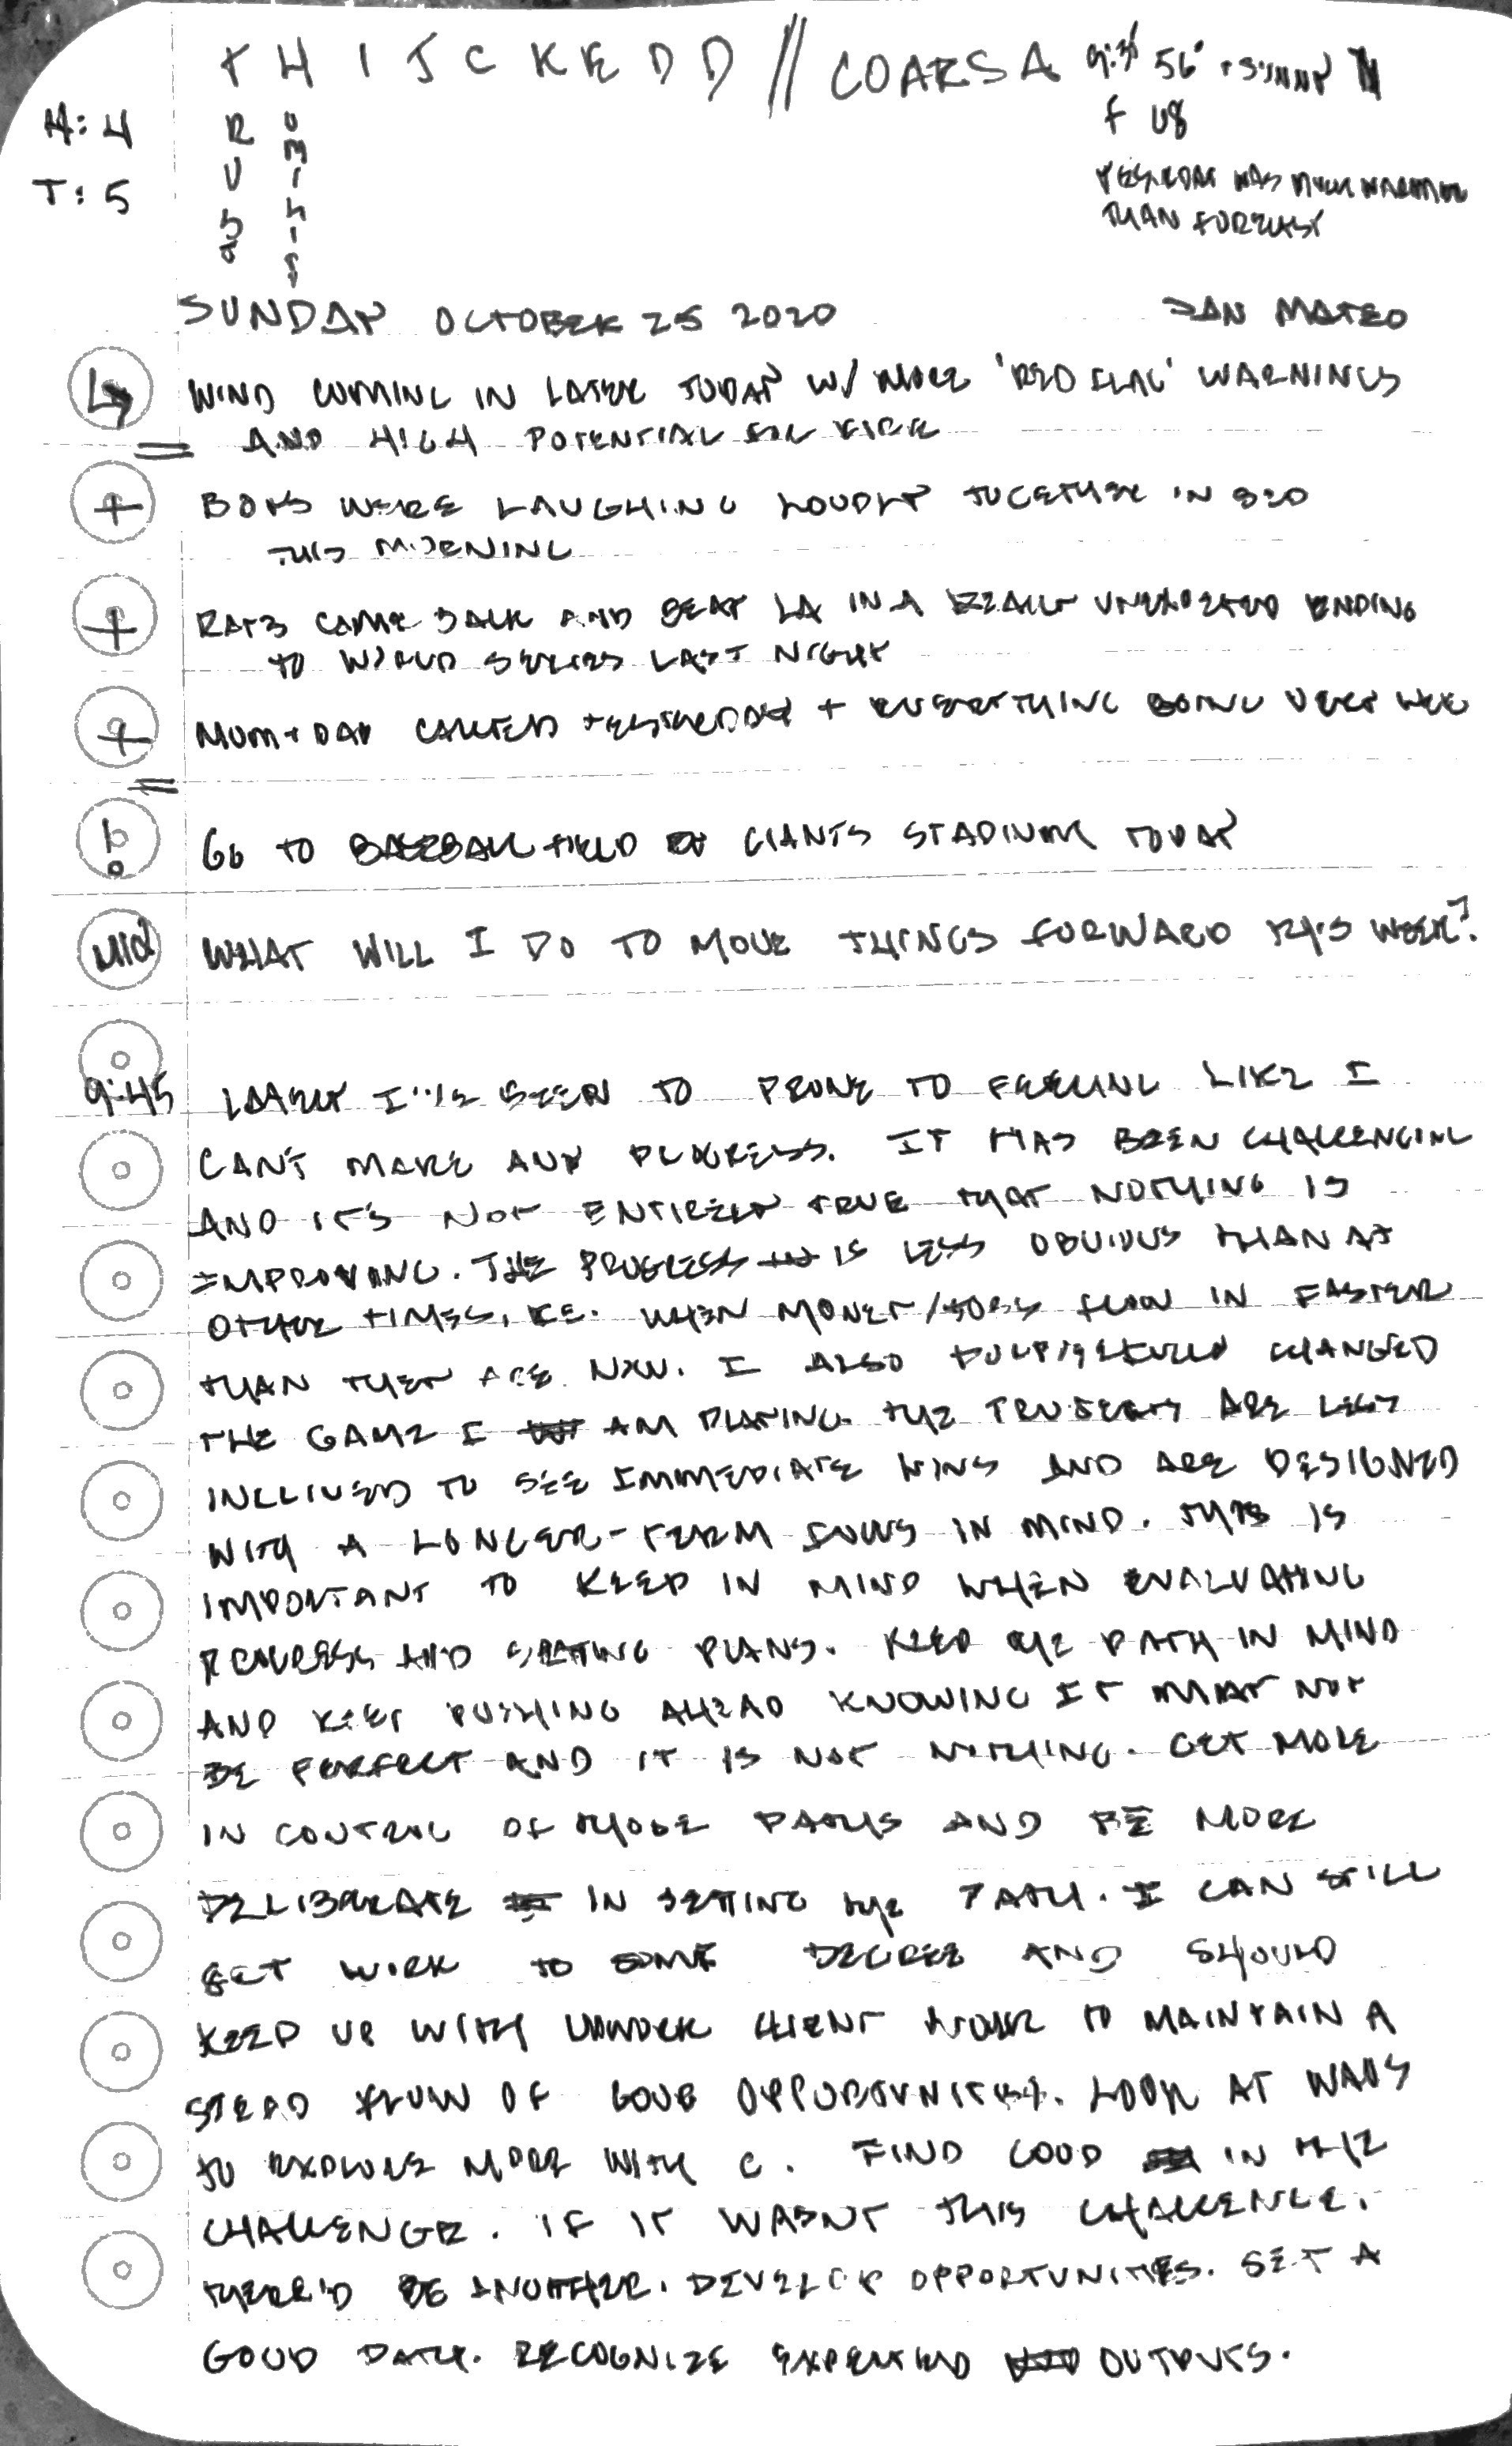 THIJCKEDD // COARSA 9:30 56° + SUNNY
H: 4
T: 5
F 68
YESTERDAY WAS MUCH WARMER
THAN FORECAST
SUNDAY OCTOBER 25 2020 SAN MATEO
WIND COMING IN LATER TODAY W/ MORE 'RED FLAG' WARNINGS
AND HIGH POTENTIAL FOR FIRE
+ BOYS WERE LAUGHING LOUDLY TOGETHER IN BED
THIS MORNING
+ RAYS CAME BACK AND BEAT LA IN A REALLY UNEXPECTED ENDING
TO WORLD SERIES LAST NIGHT
+ MOM + DAD CALLED YESTERDAY + EVERYTHING GOING VERY WELL
GO TO BASEBALL FIELD GIANTS STADIUM TODAY
WHAT WILL I DO TO MOVE THINGS FORWARD THIS WEEK?
9:45 LATELY I'VE BEEN TO PRONE TO FEELING LIKE I
CAN'T MAKE ANY PROGRESS. IT HAS BEEN CHALLENGING
AND IT'S NOT ENTIRELY TRUE THAT NOTHING IS
IMPROVING. THE PROGRESS IS LESS OBVIOUS THAN AT
OTHER TIMES, I.E. WHEN MONEY/JOBS FLOW IN FASTER
THAN THEY ARE NOW. I ALSO PURPOSEFULLY CHANGED
THE GAME I AM PLAYING. THE PROJECTS ARE LESS
INCLINED TO SEE IMMEDIATE WINS AND ARE DESIGNED
WITH A LONGER-TERM FOCUS IN MIND. THIS IS
IMPORTANT TO KEEP IN MIND WHEN EVALUATING
PROGRESS AND SETTING PLANS. KEEP THE PATH IN MIND
AND KEEP PUSHING AHEAD KNOWING IT MAY NOT
BE PERFECT AND IT IS NOT NOTHING. GET MORE
IN CONTROL OF THOSE PATHS AND BE MORE
DELIBERATE IN SETTING THE PATH. I CAN STILL
GET WORK TO SOME DEGREE AND SHOULD
KEEP UP WITH UPWORK CLIENT WORK TO MAINTAIN A
STEAD FLOW OF GOOD OPPORTUNITIES. LOOK AT WAYS
TO EXPLORE MORE WITH C. FIND GOOD IN THE
CHALLENGE. IF IT WASNT THIS CHALLENGE,
THERE'D BE ANOTHER. DEVELOP OPPORTUNITIES. SET A
GOOD PATH. RECOGNIZE EXPECTED OUTPUTS.